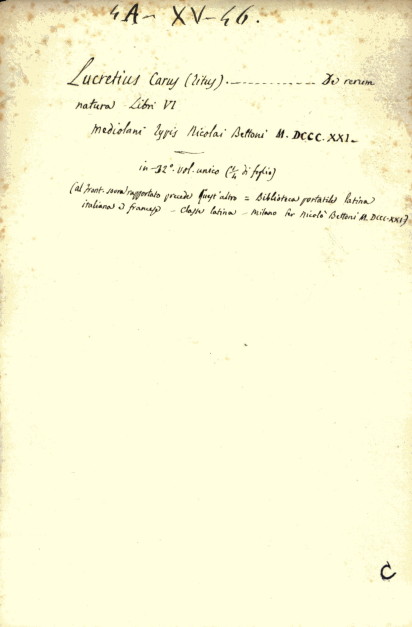 4A- XV-46.
Lucretius Carus (Titus). ------------ De rerum
natura Libri VI
Mediolani Typis Nicolai Bettoni M.DCCC.XXI-
in-32°. vol. unico (¼ di foglio)
(al front. sovra rapportato precede quest'altro = Biblioteca portatile latina
italiana e francese - Classe latina - Milano per Nicolò Bettoni M.DCCC.XXI)
C